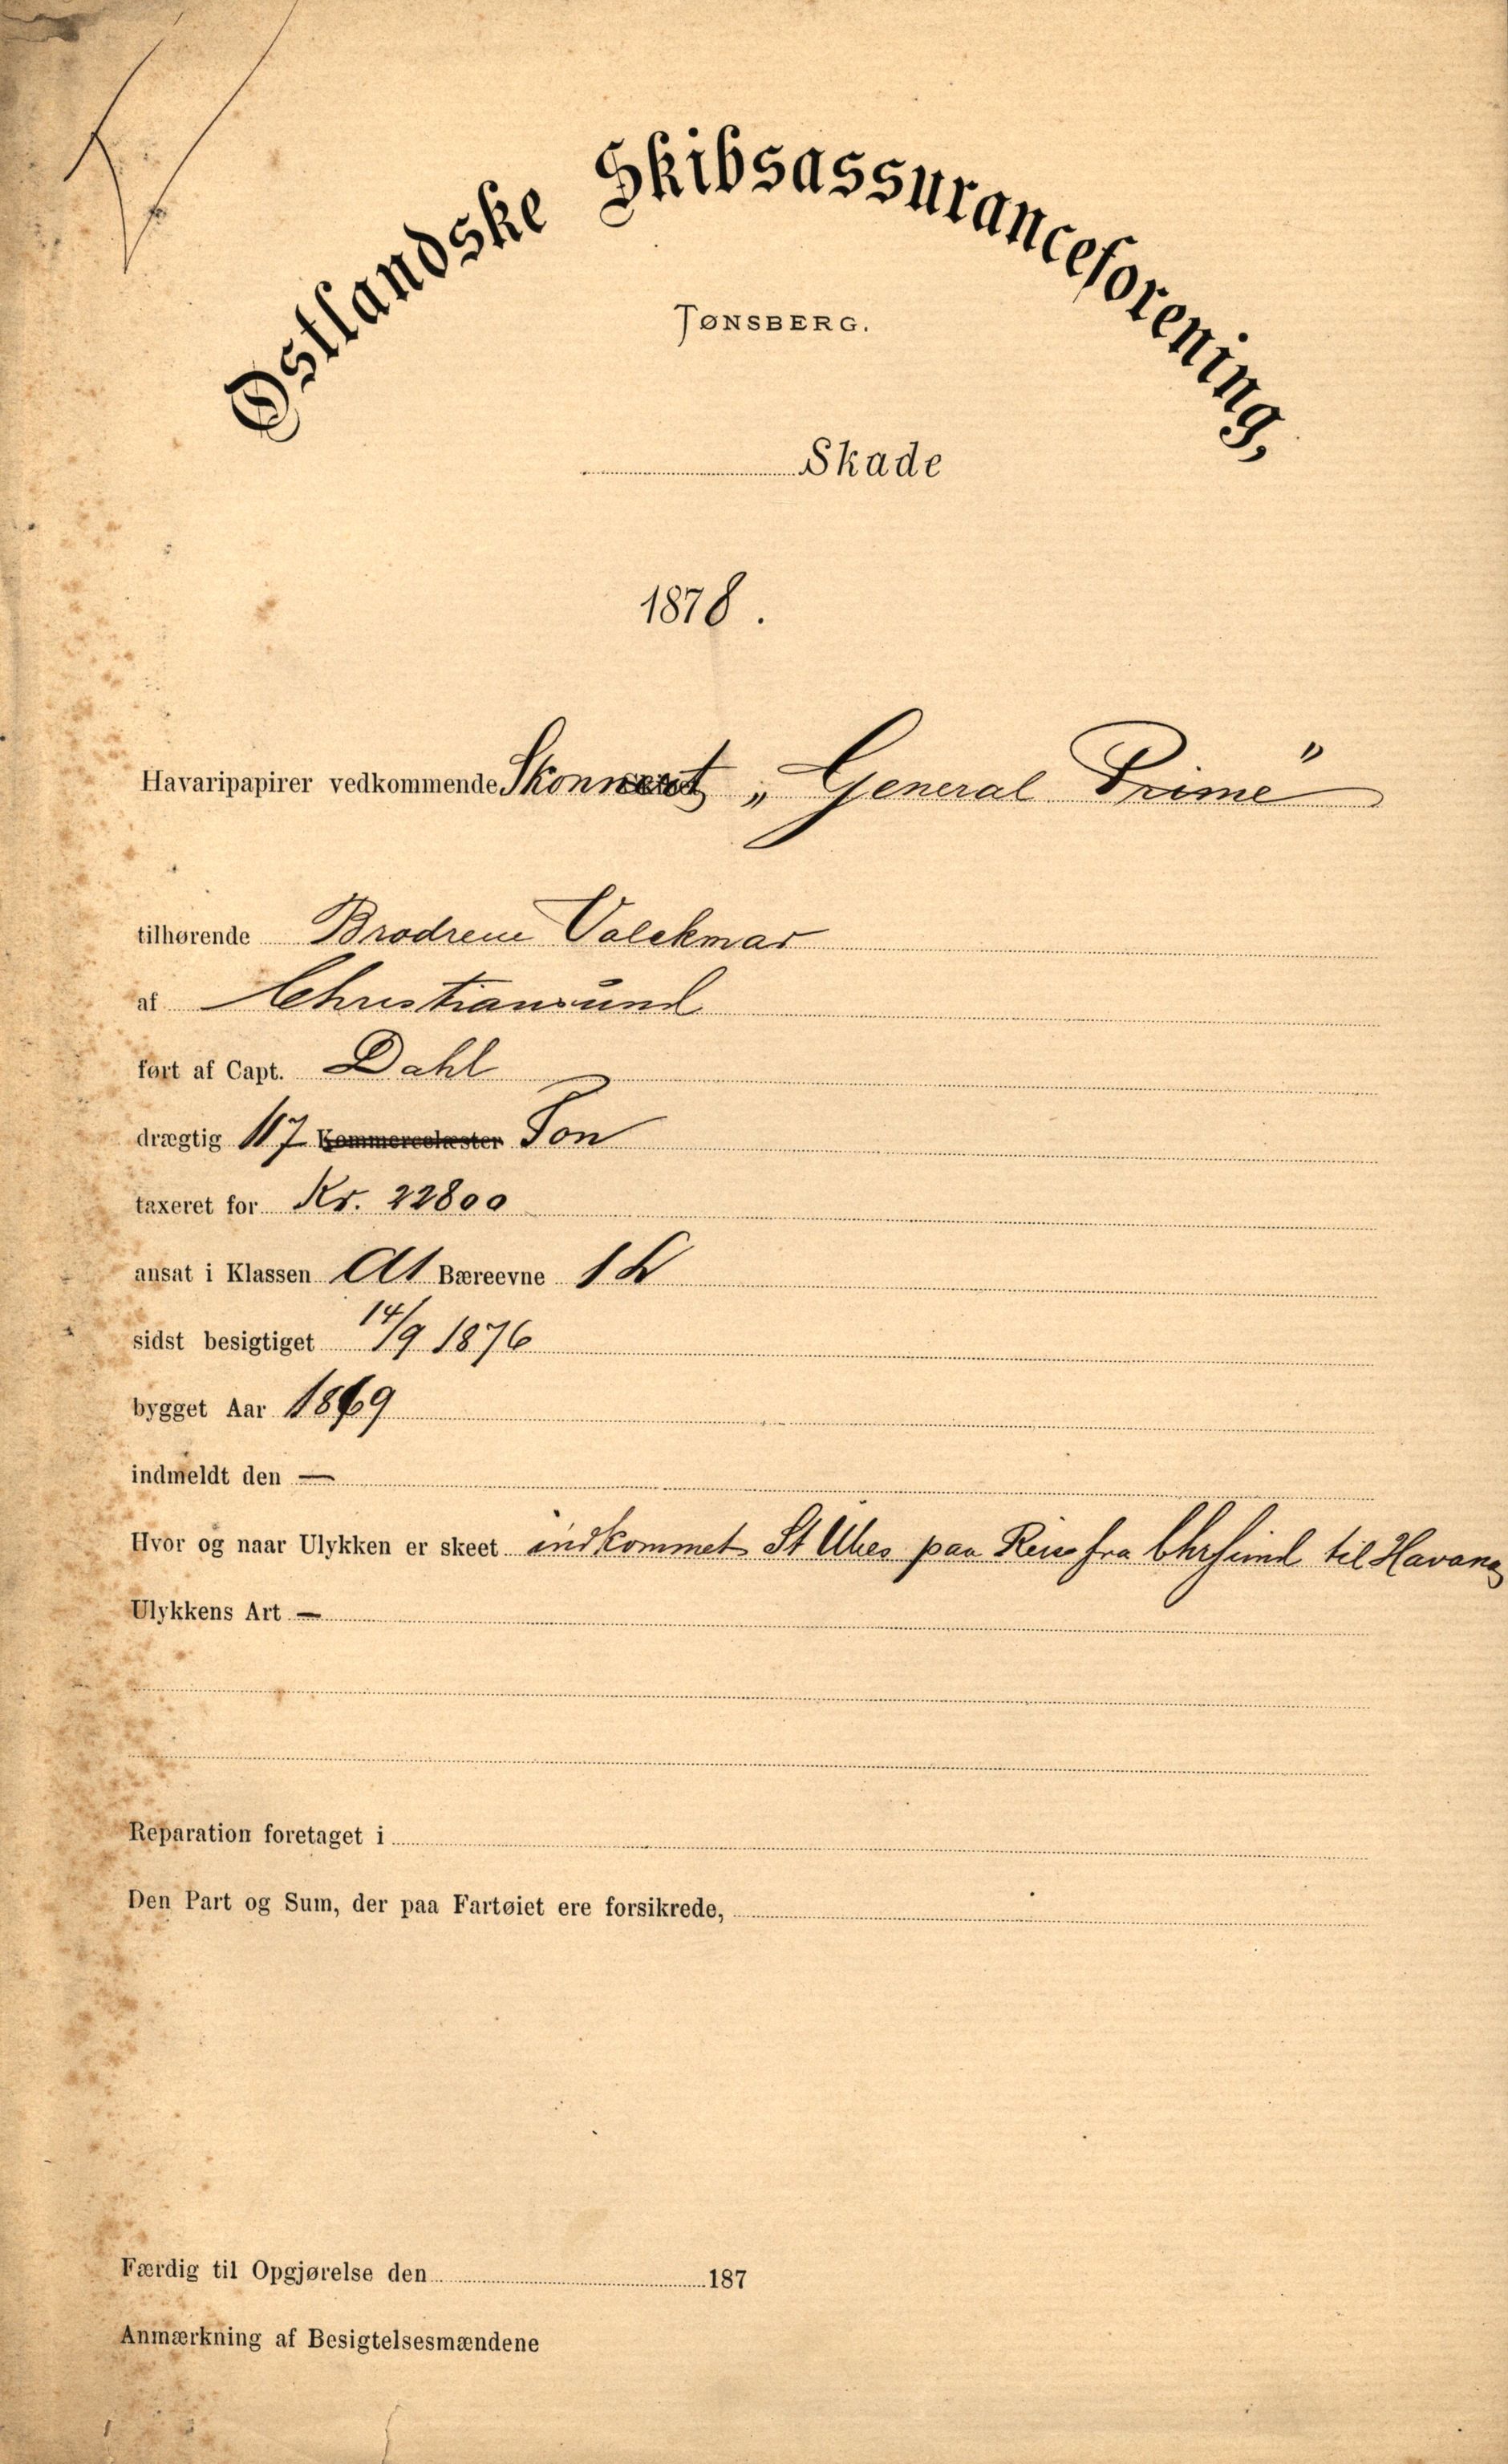 Østlandske Skibsassuranceforening,
TØNSBERG.
Skade
1878.
Havaripapirer vedkommende Skonnert „General Prime"
tilhørende Brødrene Volckmar
af Christiansund
ført af Capt. Dahl
drægtig 117 Kommercelæster Ton
taxeret for Kr. 22800
ansat i Klassen A1 Bæreevne
sidst besigtiget 14/9 1876
bygget Aar 1869
indmeldt den —
Hvor og naar Ulykken er skeet indkommet St Ubes paa Reise fra Chrsund til Havana
Ulykkens Art —
Reparation foretaget i
Den Part og Sum, der paa Fartøiet ere forsikrede,
Færdig til Opgjørelse den 187
Anmærkning af Besigtelsesmændene